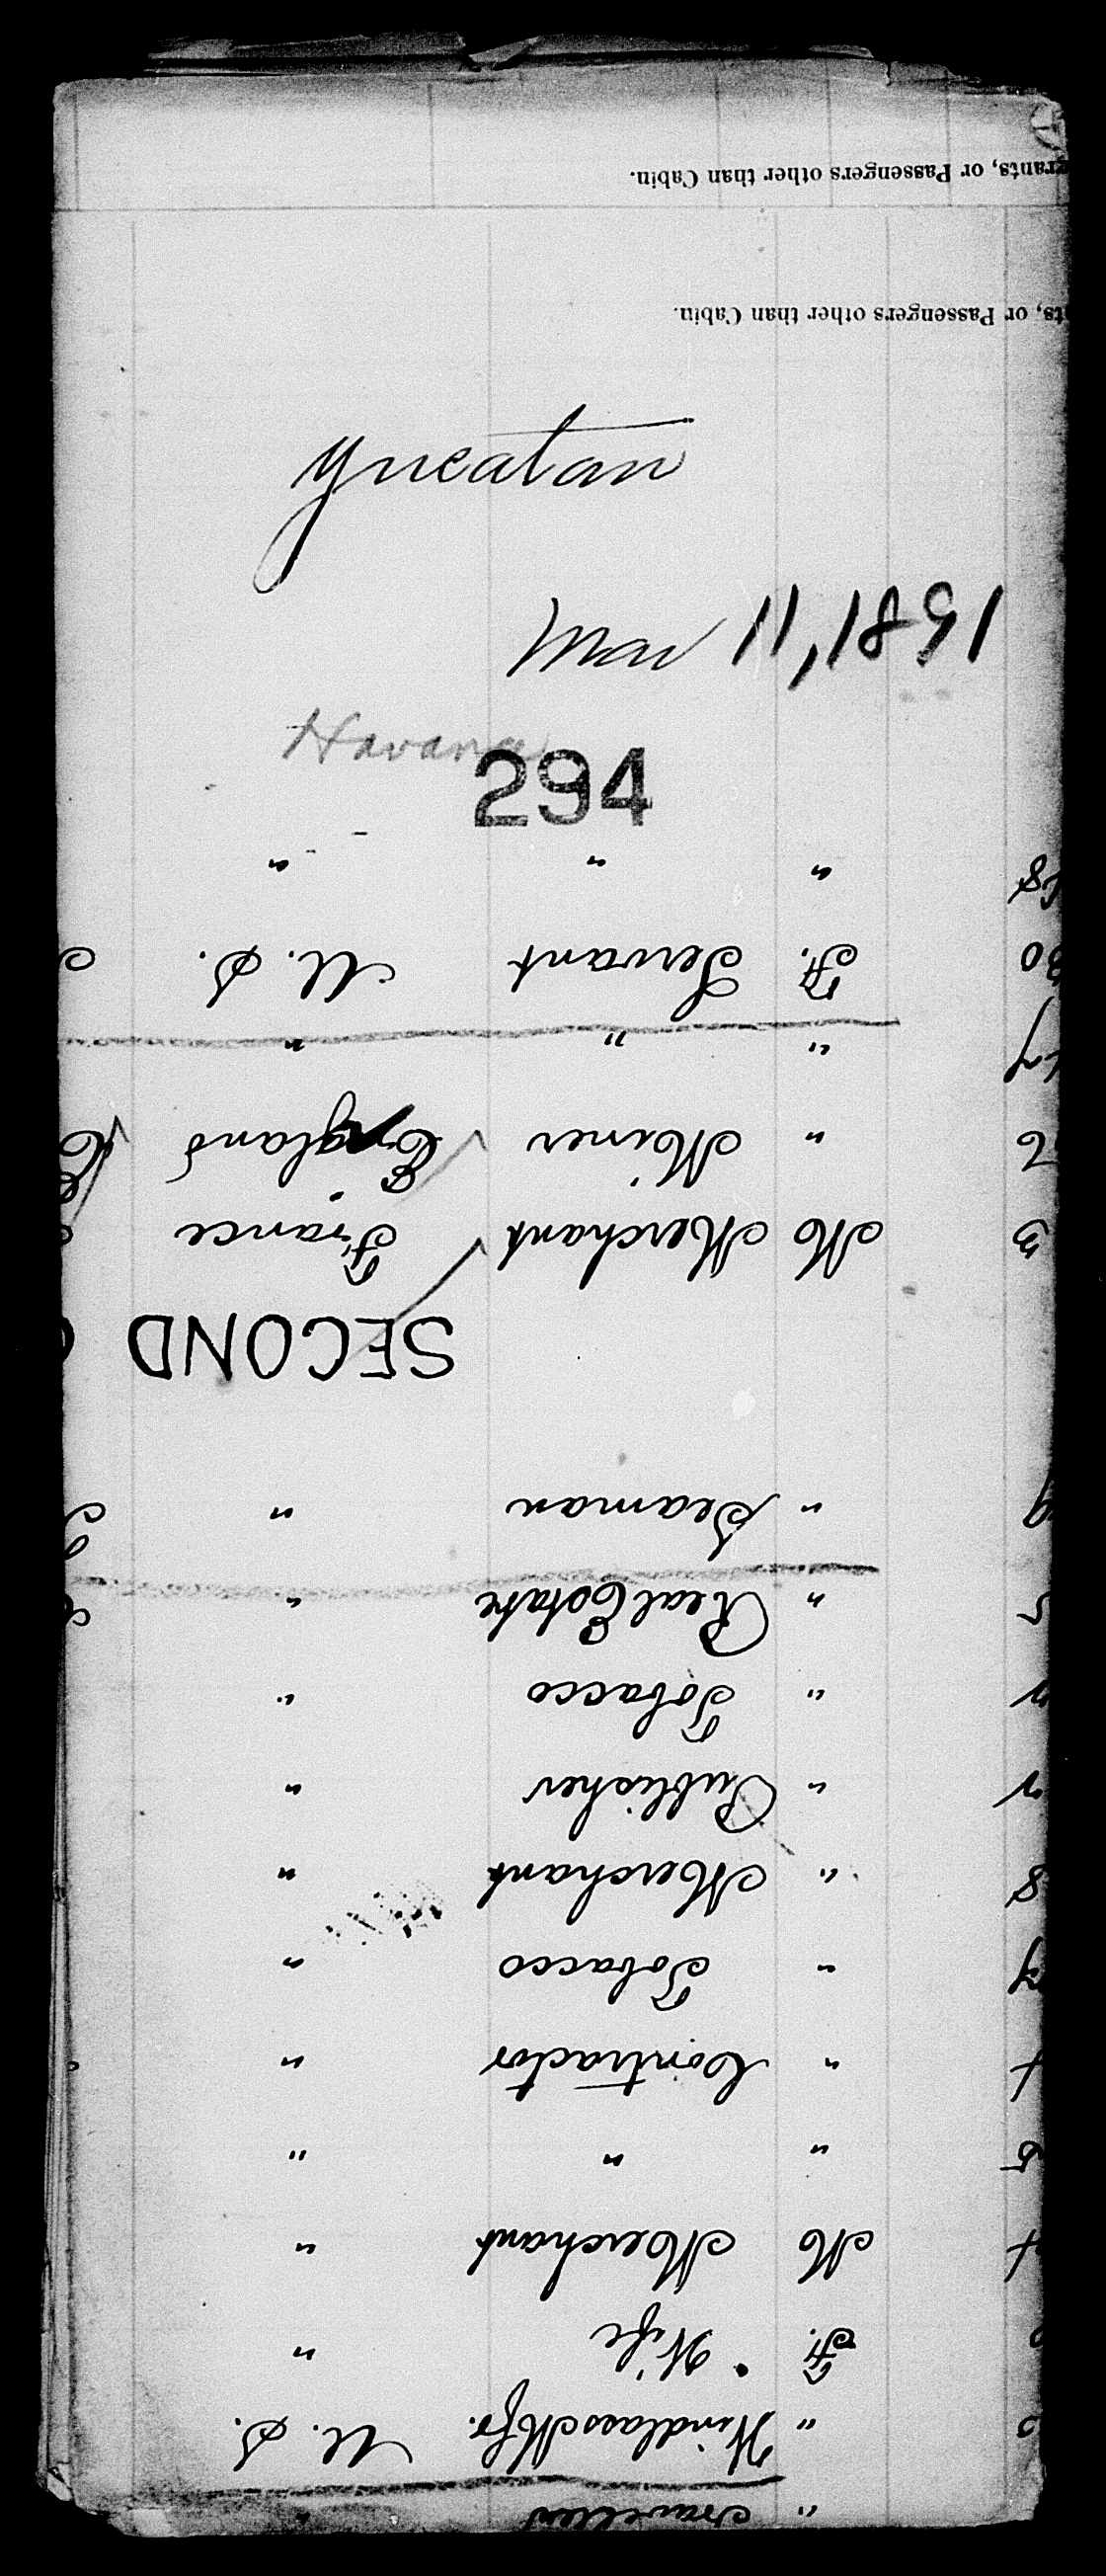 Yucatan
Mar 11, 1891
Havana
294
" Traveller "
" Windlass Mfr. U. S.
F. " Wife "
M Merchant "
" " "
" Contractor "
" Tobacco "
8 " Merchant "
" Publisher "
" Tobacco "
5 " Real Estate "
9 " Seaman "
SECOND
3 M Merchant France
" Miner England
" " "
30 F. Servant U. S.
" " "
or Passengers other than Cabin.
or Passengers other than Cabin.